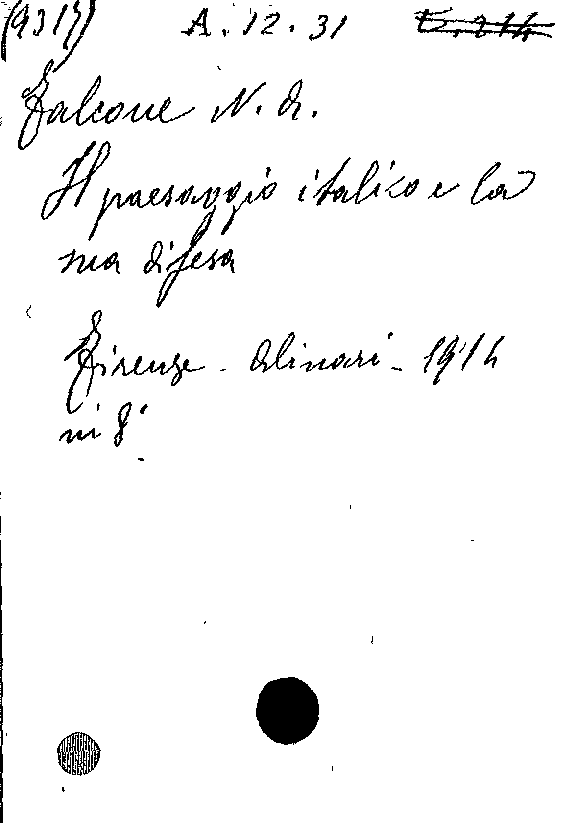 A. 12. 31
Falcone N. A.
Il paesaggio italico e la
sua difesa
Firenze - Alinari - 1914
in 8°